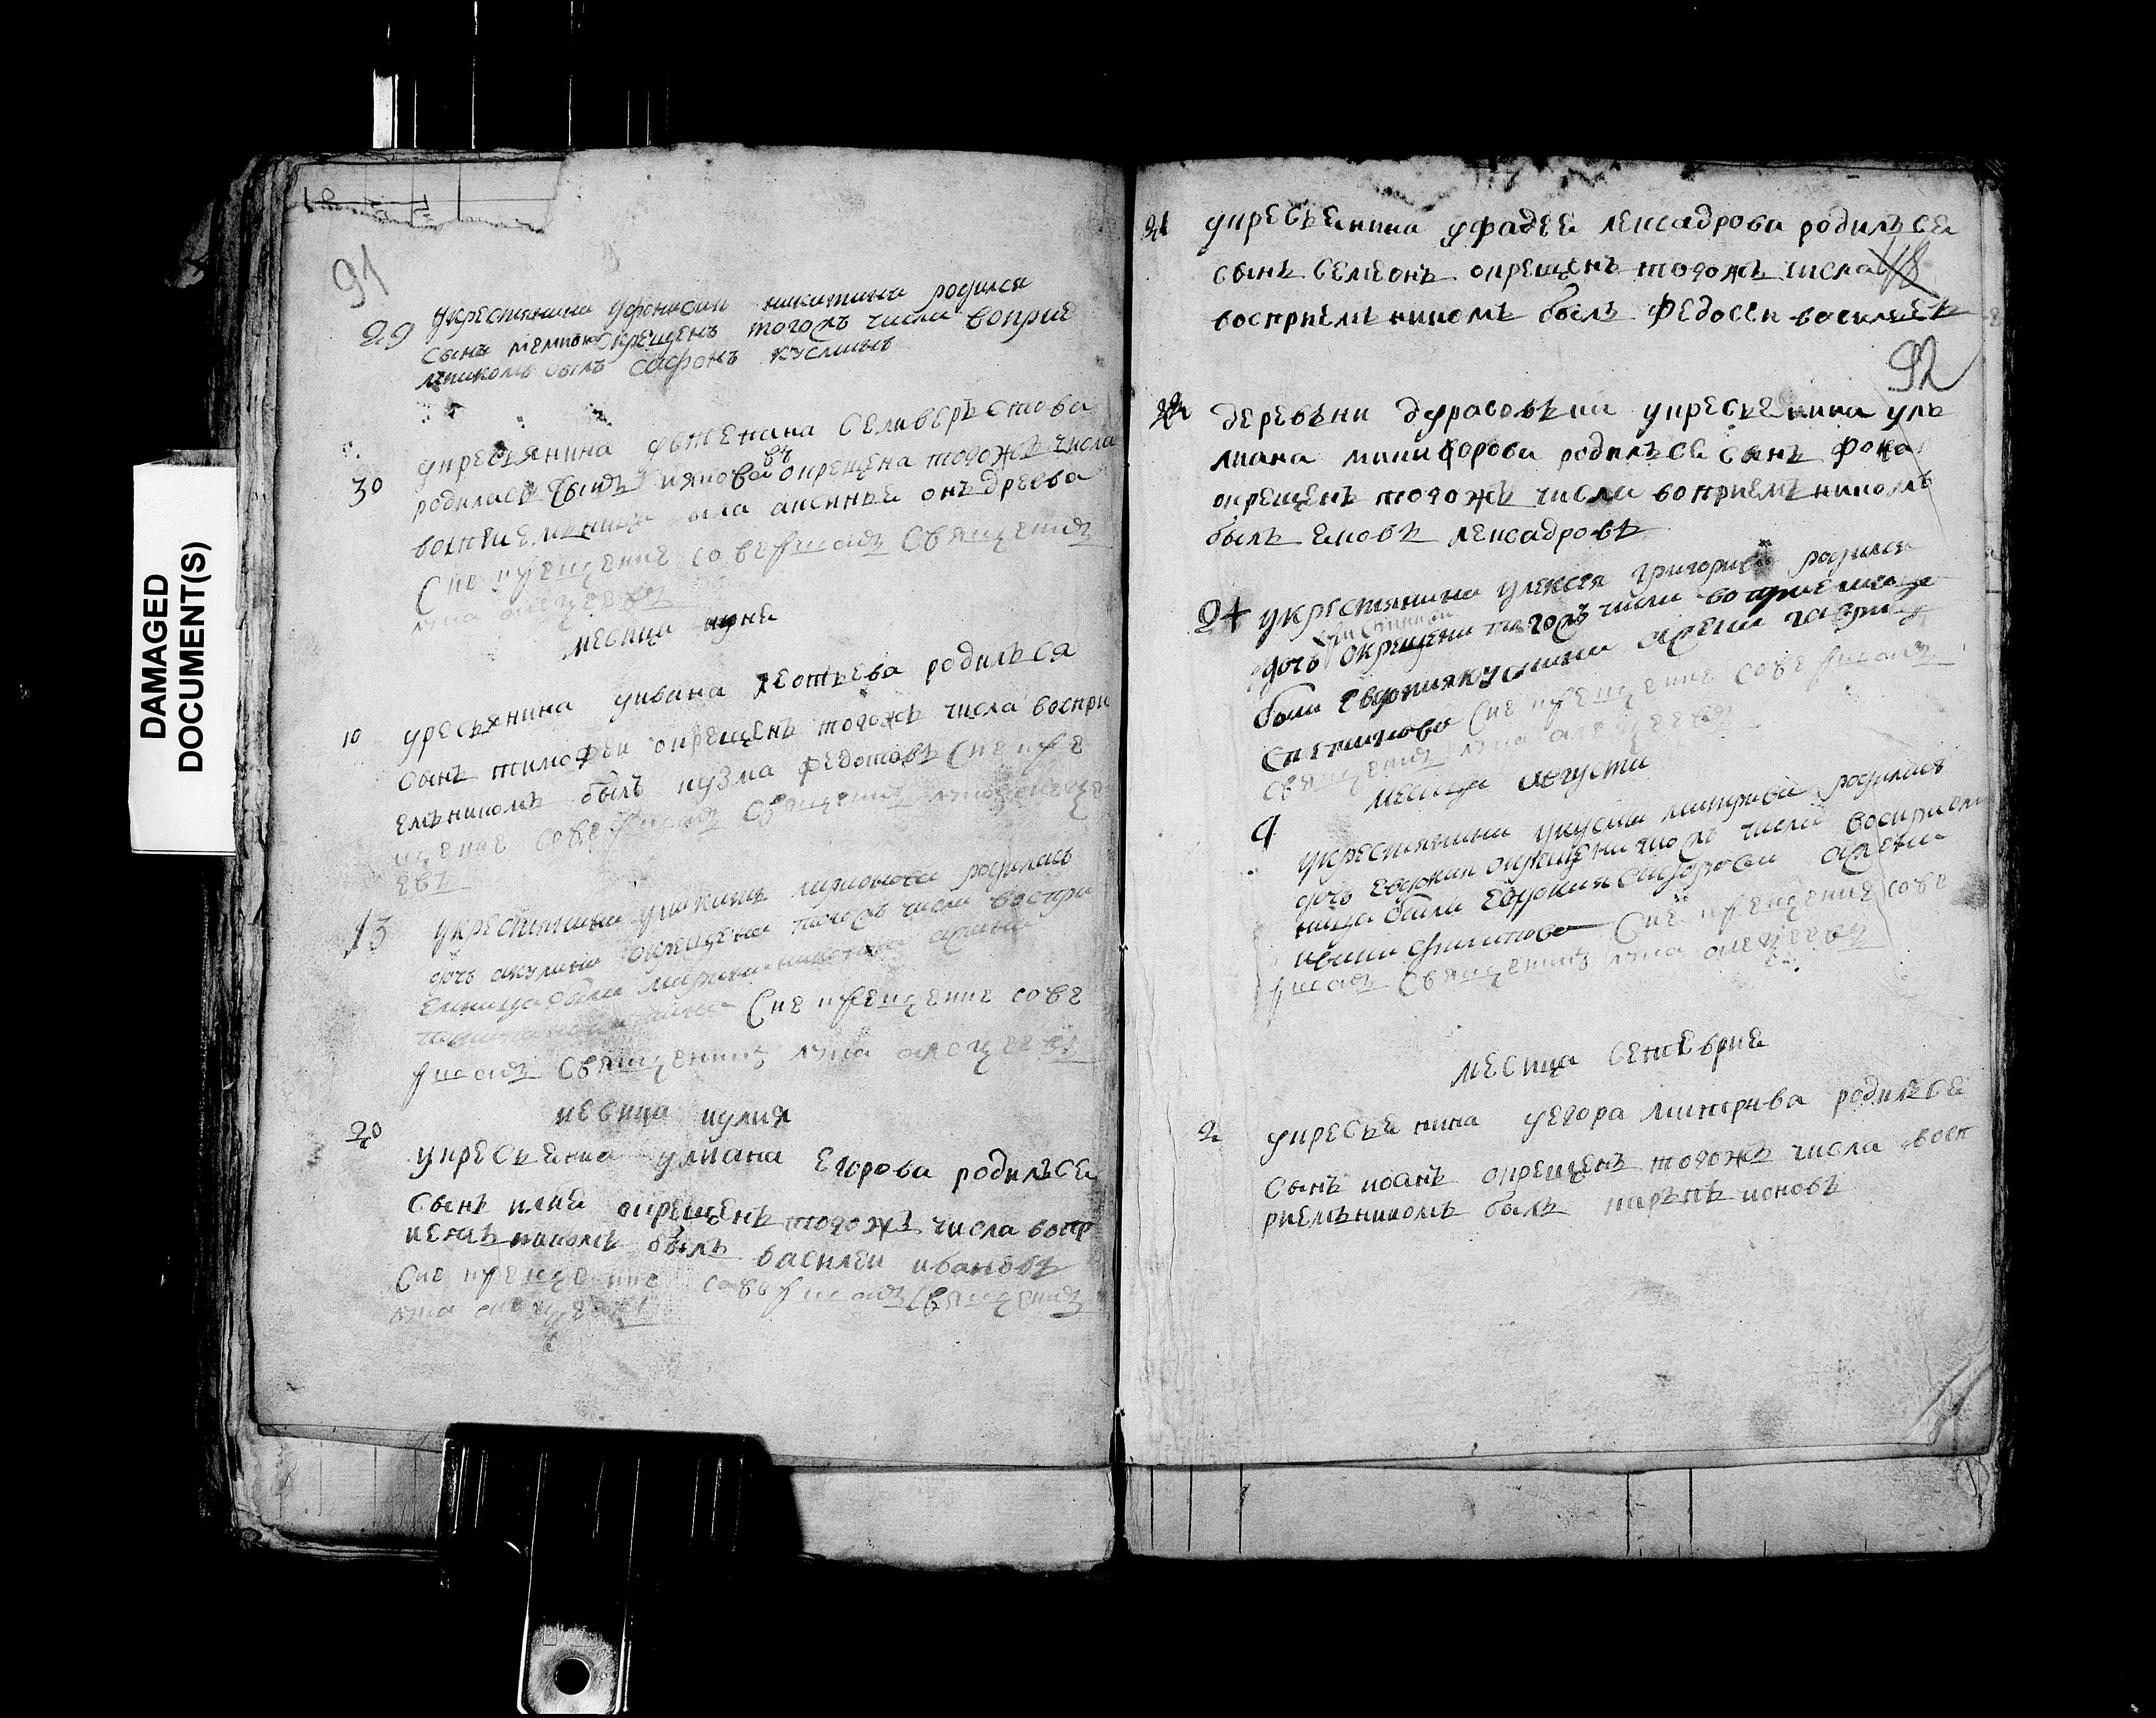 DAMAGED
DOCUMENT(S)
91
29 укрестянина уфонасия никитина родился
сынъ окрещенъ тогожъ числа воприе
мникомъ былъ сафонъ кусминъ
30 укресьянина селиверъстова
родилась окрещена тогожъ числа
была аксинья онъдреева
Сие крещение совершалъ Священникъ
лука алеѯеевъ
месяца июня
10 укресьянина уивана родилъся
сынъ тимофеи окрещенъ тогожъ числа воспри
емъникомъ былъ кузма федотовъ Сие кре
щение совершалъ Священникъ лука алеѯе
евъ
13 укрестянина родилась
дочь акулина окрещена тогожъ числа воспри
емница была
Сие крещение сове
ршалъ Священникъ лука алеѯеевъ
месица иулия
20 укресьенина улиана егорова родилъсе
сынъ илия окрещенъ тогожъ числа вопр
иемъникомъ былъ василеи ивановъ
Сие крещение совершалъ Священникъ
лука алеѯеевъ
21 укресьенина уфадее лексадрова родилъсе
сынъ семеонъ окрещенъ тогожъ числа 48
восприемъникомъ былъ Федосеи василевъ
92
22 деревъни дурасовъки укресьенина уль
лиана микифорова родилъсе сынъ фока
окрещенъ тогожъ числа воприемъникомъ
былъ ековъ лексадровъ
24 укрестянина улексея григорива родилася
дочь окрещена тогожъ числа воприемнице
была евдокия кусмина жена гаври
Сие крещение совершалъ
священникъ лука алеѯеевъ
месица августа
9 укрестянина укусмы митрива родилась
дочь евдокия окрещена тогожъ числа восприем
ница была евдокия сидорова жена
ивана филипова Сие крещение сове
ршалъ Священникъ лука алеѯеевъ
месица сентебрие
2 укресьенина уегора митрива родилъсе
сынъ иоанъ окрещенъ тогожъ числа восп
риемъникомъ былъ карпъ ионовъ